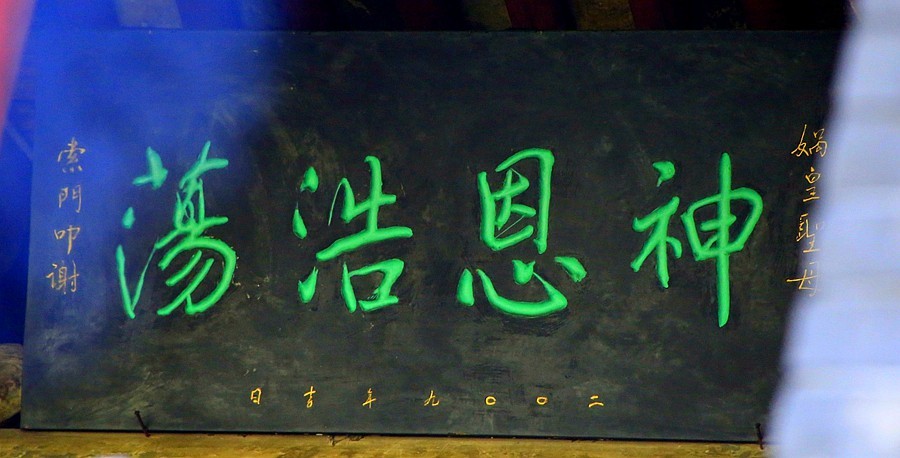 媧皇聖母
神恩浩蕩
二〇〇九年吉日
索門叩谢